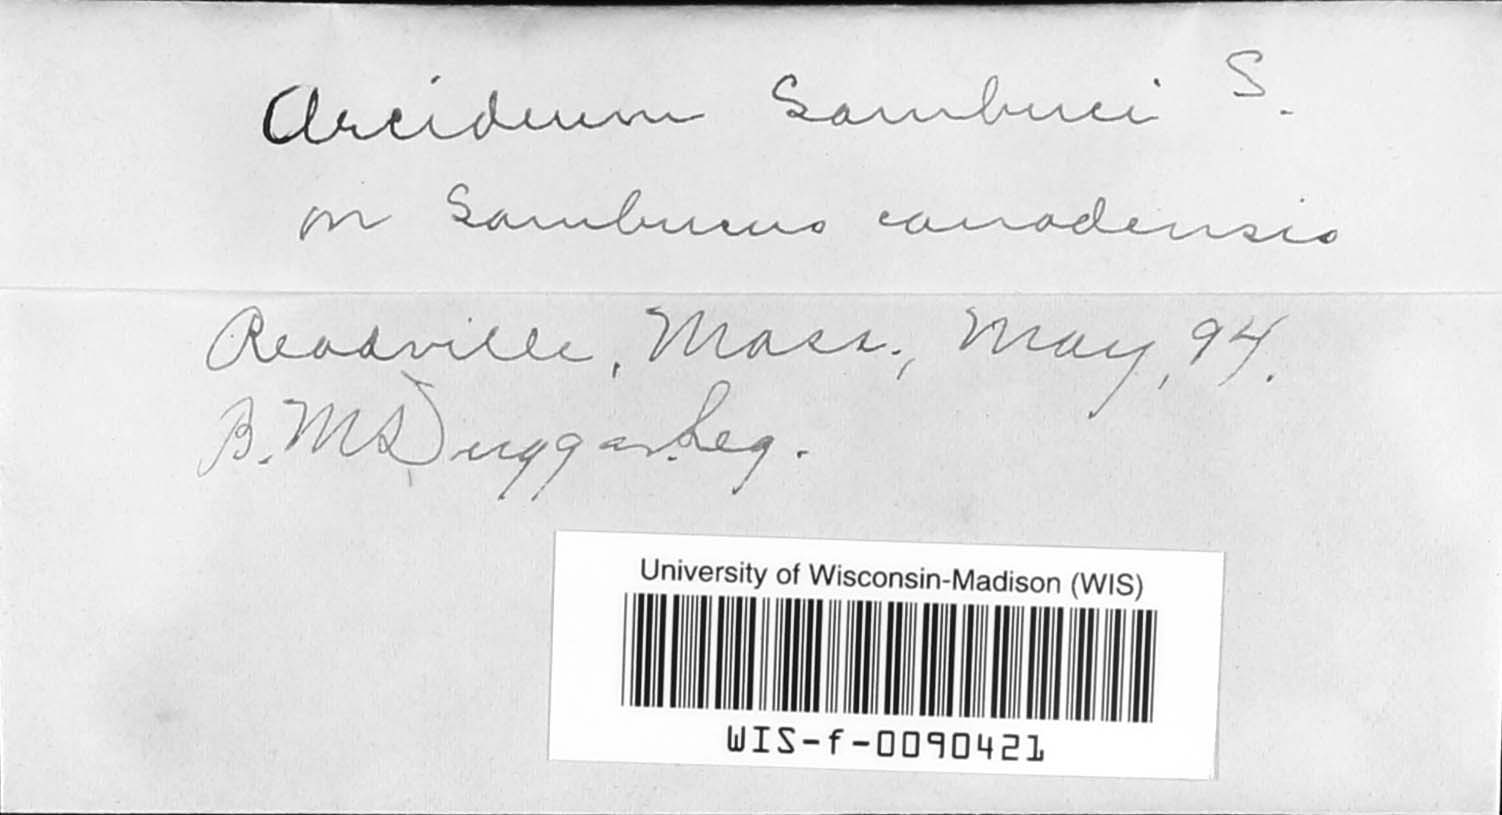 Aecidium Sambuci S.
on Sambucus canadensis
Readville, Mass., May, 94.
B. M. Duggar. Leg.
University of Wisconsin-Madison (WIS)
WIS-f-0090421